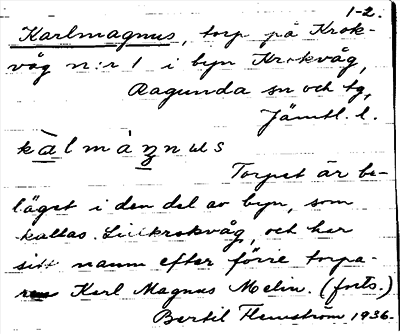 1-2.
Karlmagnus, torp på Krok-
våg n:r 1 i byn Krokvåg,
Ragunda sn och tg,
Jämtl. l.
kàlmàgnus
Torpet är be-
läget i den del av byn, som
kallas Lillkrokvåg, och har
sitt namn efter förre torpa-
ren Karl Magnus Melin. (forts.)
Bertil Flemström 1936.